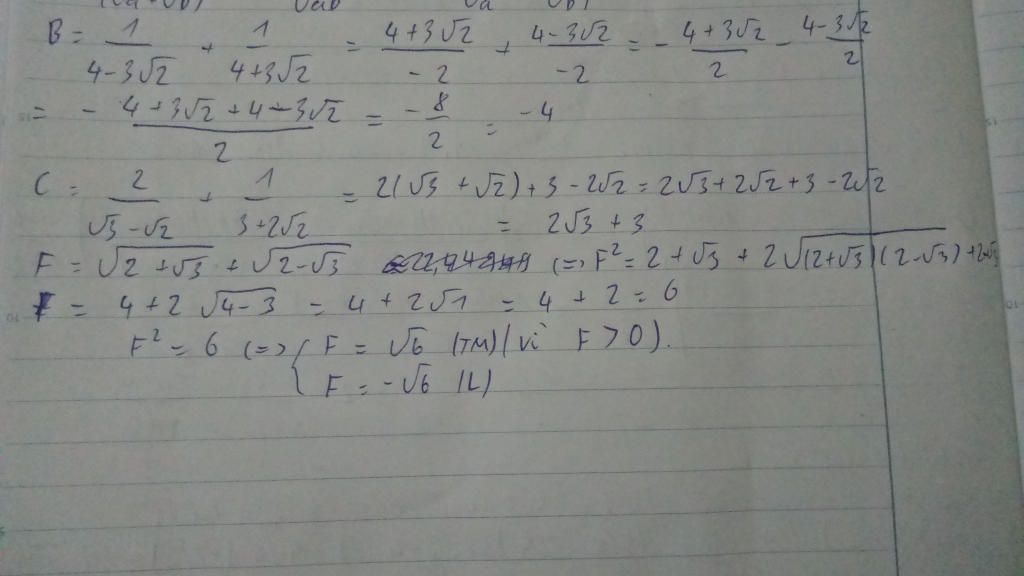 B = 1/(4-3√2) + 1/(4+3√2) = (4+3√2)/(-2) + (4-3√2)/(-2) = - (4+3√2)/2 - (4-3√2)/2
= - (4+3√2+4-3√2)/2 = -8/2 = -4
C = 2/(√3-√2) + 1/(3+2√2) = 2(√3+√2)+3-2√2 = 2√3+2√2+3-2√2
= 2√3+3
F = √(2+√3) + √(2-√3) (=) F² = 2+√3 + 2√((2+√3)(2-√3)) + 2-√3
= 4+2√(4-3) = 4+2√1 = 4+2 = 6
F² = 6 (=) { F = √6 (TM) (vì F > 0).
F = -√6 (L)